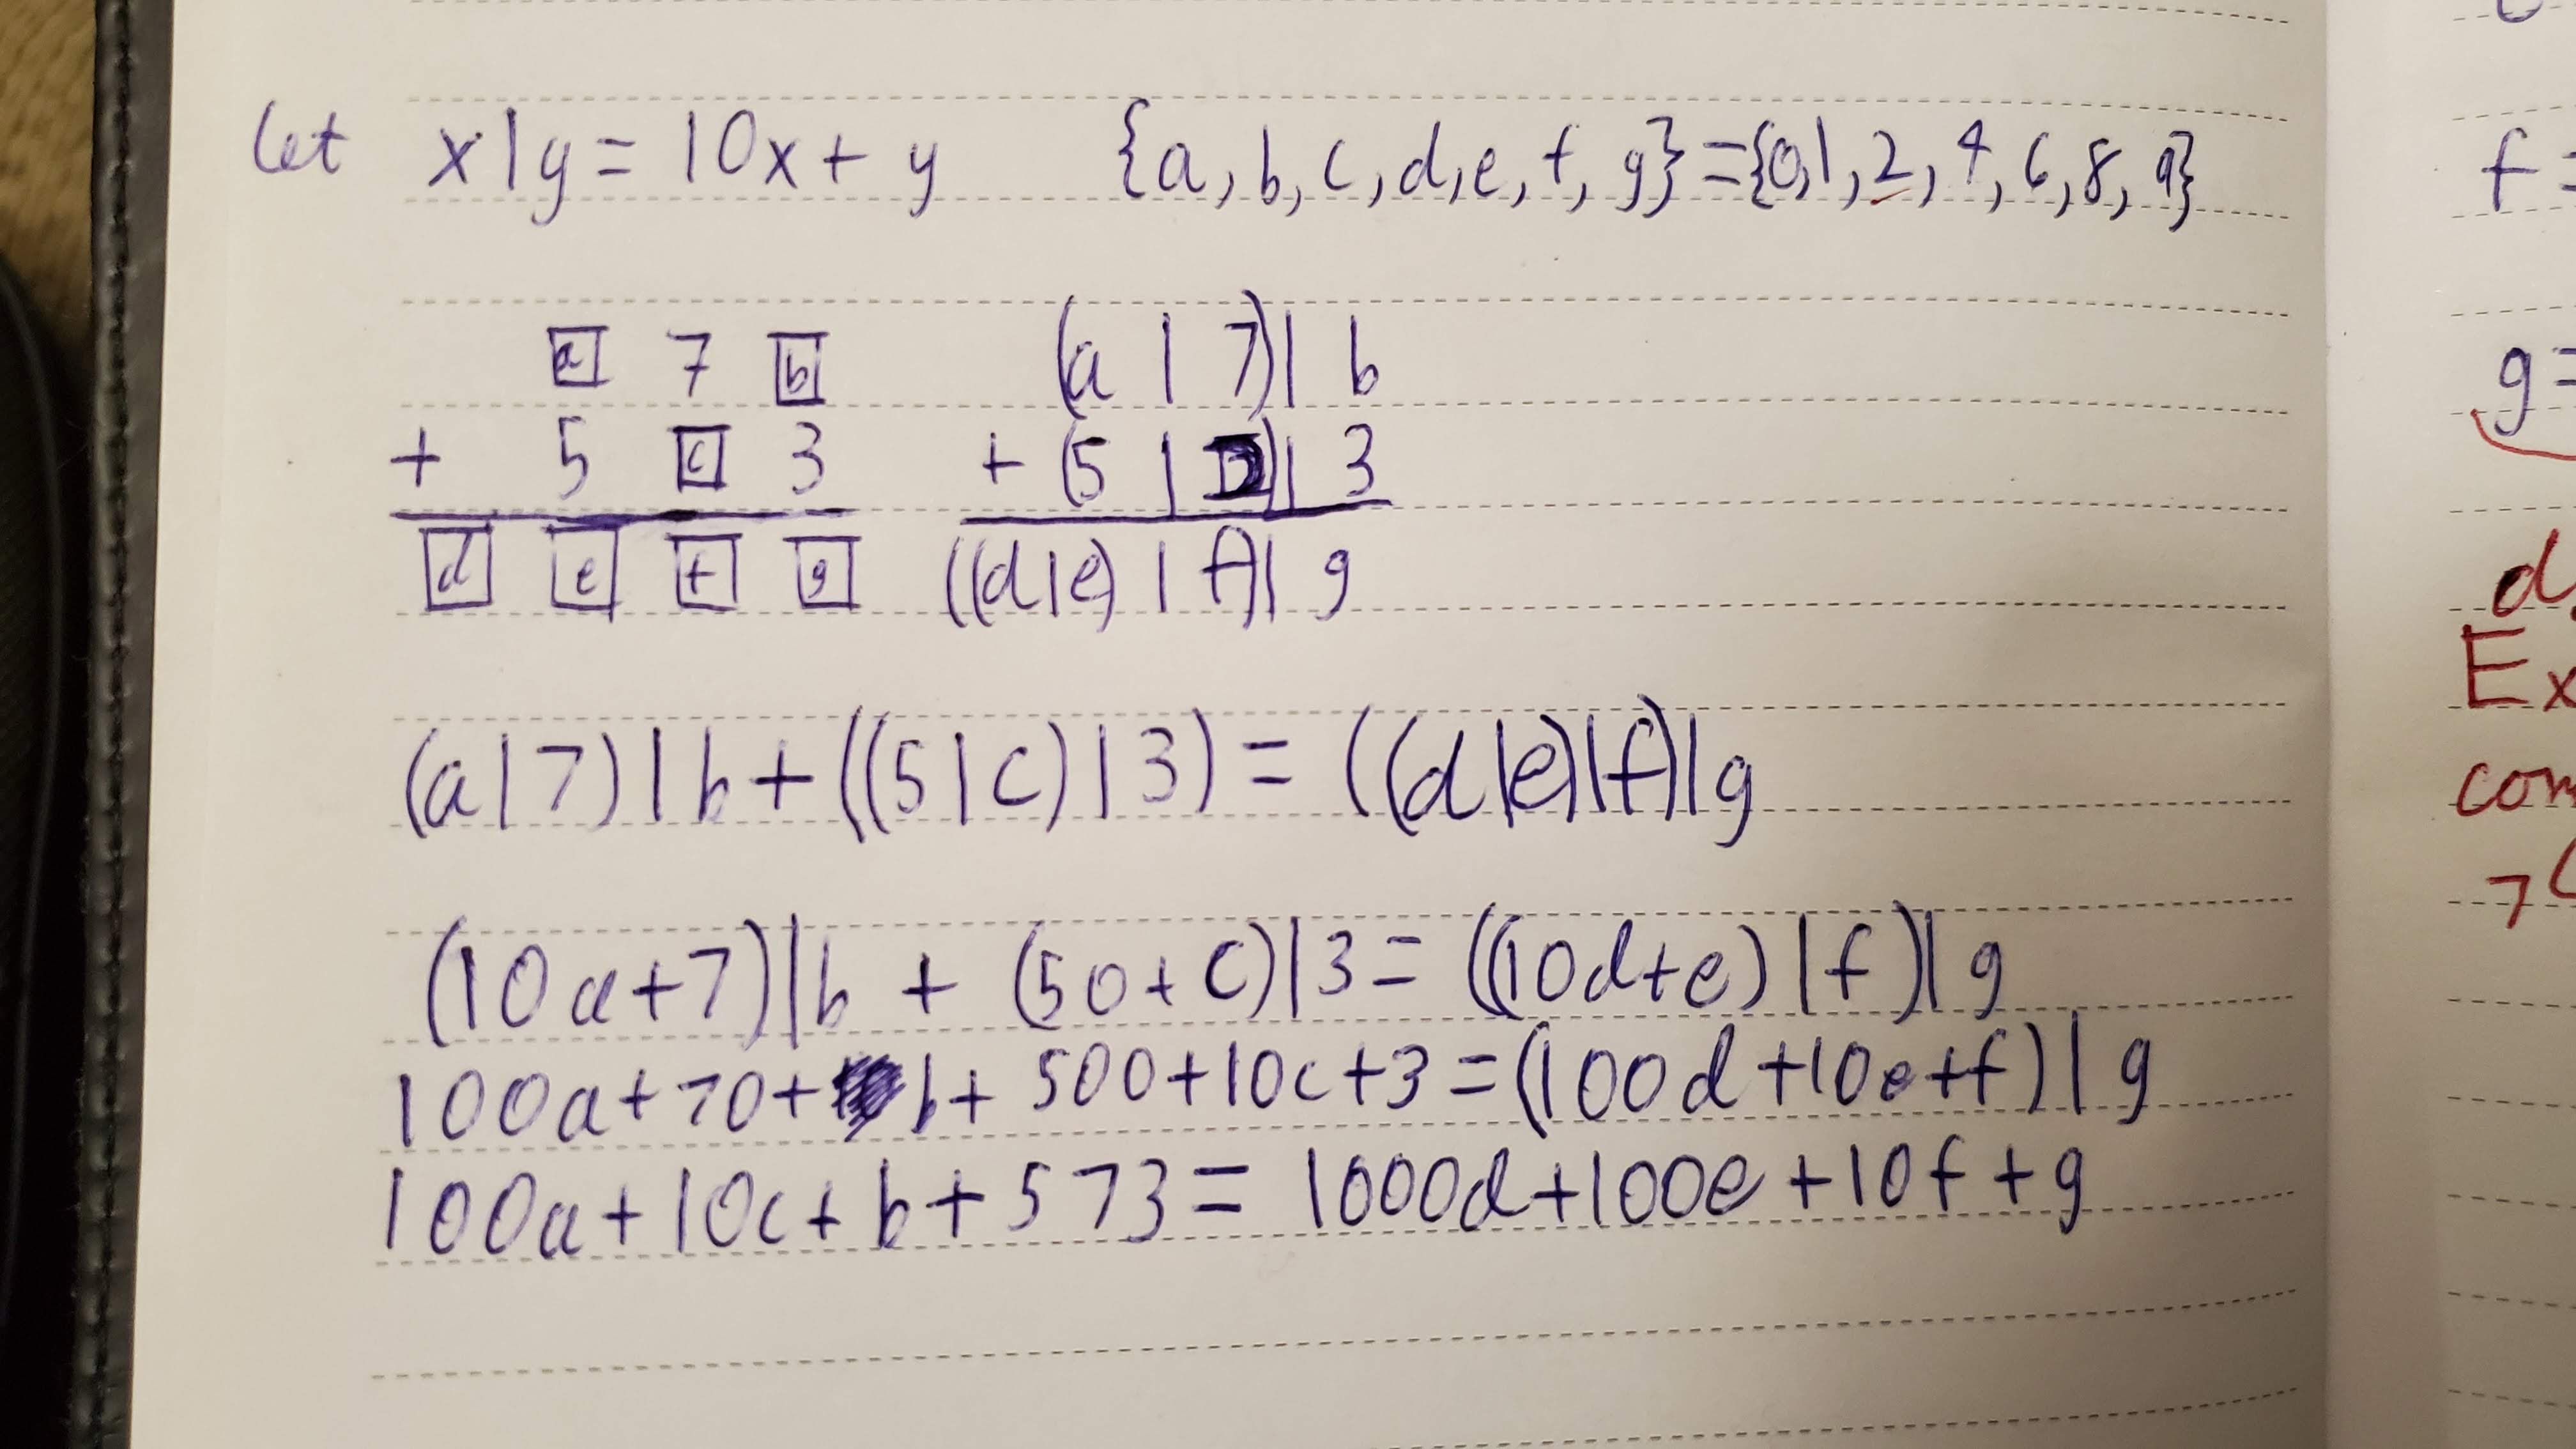 Let x|y = 10x + y {a, b, c, d, e, f, g} = {0, 1, 2, 4, 6, 8, 9}
a 7 b (a | 7) | b
+ 5 c 3 + (5 | ) | 3
d e f g ((d|e) | f) | g
(a|7)|b + ((5|c)|3) = ((d|e)|f)|g
(10a+7)|b + (50+c)|3 = ((10d+e)|f)|g
100a + 70 + b + 500 + 10c + 3 = (100d + 10e + f)|g
100a + 10c + b + 573 = 1000d + 100e + 10f + g
f =
g =
d,
Ex
com
7